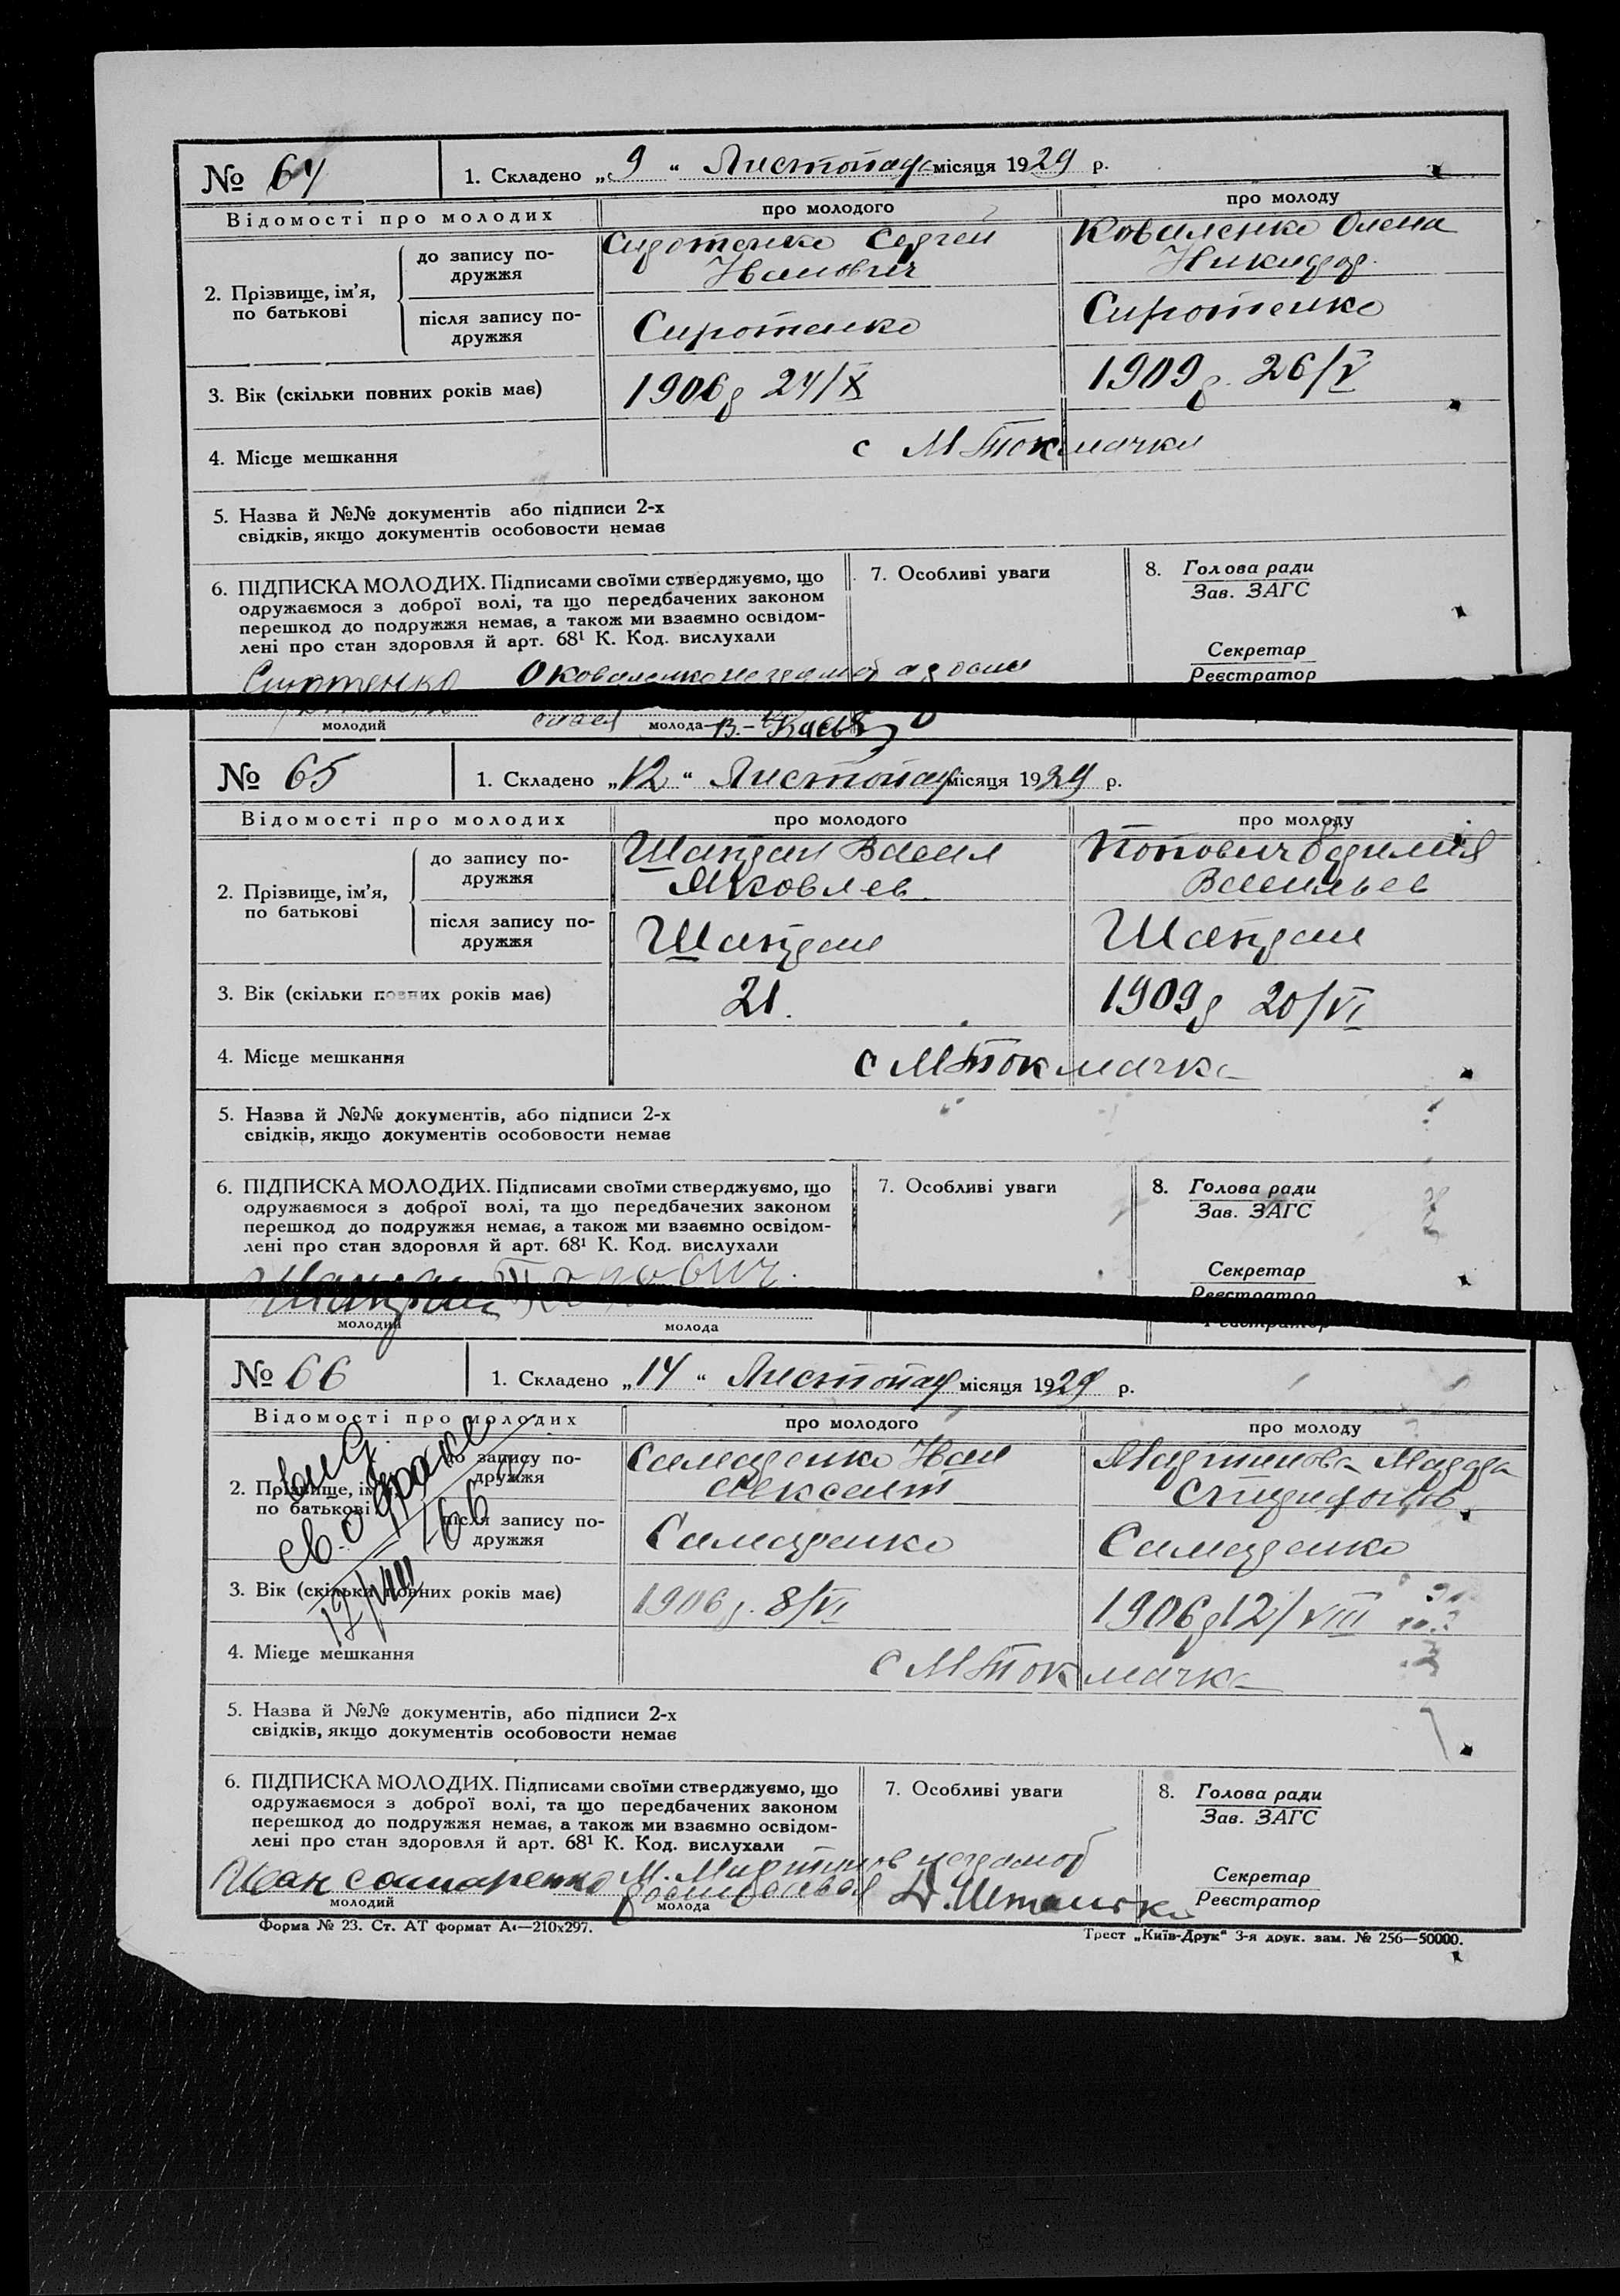 № 64 1. Складено „ 9 “ Листопада місяця 1929 р.
Відомості про молодих про молодого про молоду
2. Прізвище, ім’я, по батькові
до запису по-
дружжя
Сиротенко Сергей
Иванович
Коваленко Олена
Никифор.
після запису по-
дружжя
Сиротенко
Сиротенко
3. Вік (скільки повних років має) 1906р 24/X 1909р. 26/V
4. Місце мешкання с М Токмачка
5. Назва й №№ документів або підписи 2-х
свідків, якщо документів особовости немає
6. ПІДПИСКА МОЛОДИХ. Підписами своїми стверджуємо, що
одружаємося з доброї волі, та що передбачених законом
перешкод до подружжя немає, а також ми взаємно освідом-
лені про стан здоровля й арт. 68¹ К. Код. вислухали
7. Особливі уваги
8. Голова ради
Зав. ЗАГС
Секретар
Реєстратор
Сиротенко О Коваленко неграмот
молодий молода
№ 65 1. Складено „ 12 “ Листопад місяця 1929 р.
Відомості про молодих про молодого про молоду
2. Прізвище, ім’я,
по батькові
до запису по-
дружжя
Шапран Васил
Яковлев
Попович
Васильев
після запису по-
дружжя
Шапран
Шапран
3. Вік (скільки повних років має) 21. 1909р 20/VI
4. Місце мешкання с М Токмачка
5. Назва й №№ документів, або підписи 2-х
свідків, якщо документів особовости немає
6. ПІДПИСКА МОЛОДИХ. Підписами своїми стверджуємо, що
одружаємося з доброї волі, та що передбачених законом
перешкод до подружжя немає, а також ми взаємно освідом-
лені про стан здоровля й арт. 68¹ К. Код. вислухали
7. Особливі уваги
8. Голова ради
Зав. ЗАГС
Секретар
Реєстратор
Шапран Попович
молодий молода
№ 66 1. Складено „ 14 “ Листопад місяця 1929 р.
Відомості про молодих про молодого про молоду
выд.
св. о браке
17/VIII-66
2. Прізвище, ім’я,
по батькові
до запису по-
дружжя
Самаренко Иван
Алексант
Мартинова
після запису по-
дружжя
Самаренко
Самаренко
3. Вік (скільки повних років має) 1906р. 8/VI 1906р 12/VIII
4. Місце мешкання с М Токмачка
5. Назва й №№ документів, або підписи 2-х
свідків, якщо документів особовости немає
6. ПІДПИСКА МОЛОДИХ. Підписами своїми стверджуємо, що
одружаємося з доброї волі, та що передбачених законом
перешкод до подружжя немає, а також ми взаємно освідом-
лені про стан здоровля й арт. 68¹ К. Код. вислухали
7. Особливі уваги
8. Голова ради
Зав. ЗАГС
Секретар
Реєстратор
Иван Самаренко М. Мартинов неграмот
молодий молода
Форма № 23. Ст. АТ формат А₄—210х297.
Трест „Київ-Друк“ 3-я друк. зам. № 256—50000.